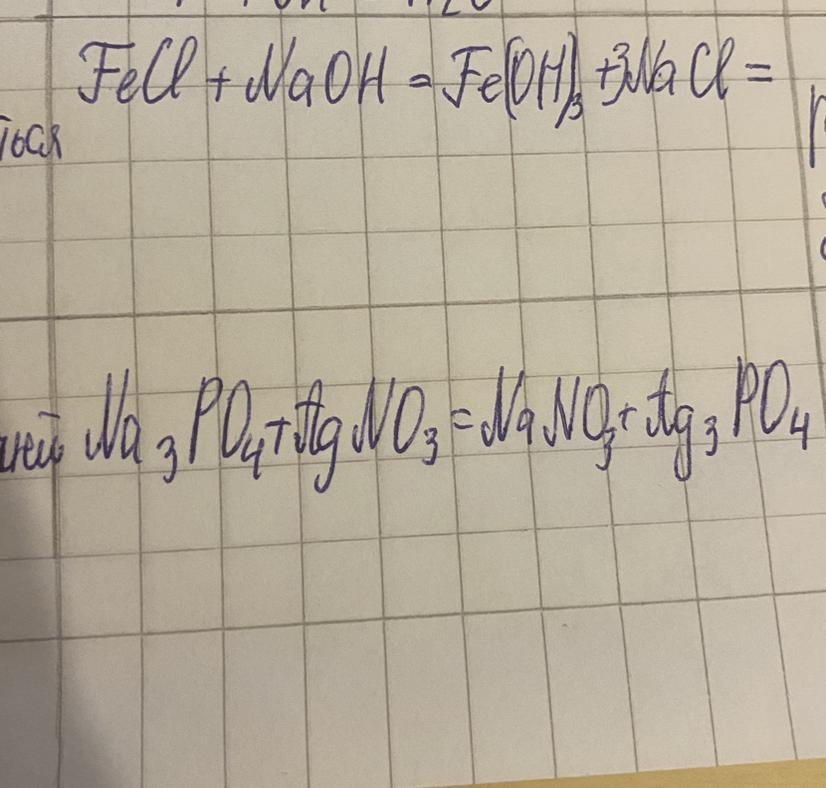 FeCl + NaOH = Fe(OH)₃ + 3NaCl =
Na₃PO₄ + AgNO₃ = NaNO₃ + Ag₃PO₄